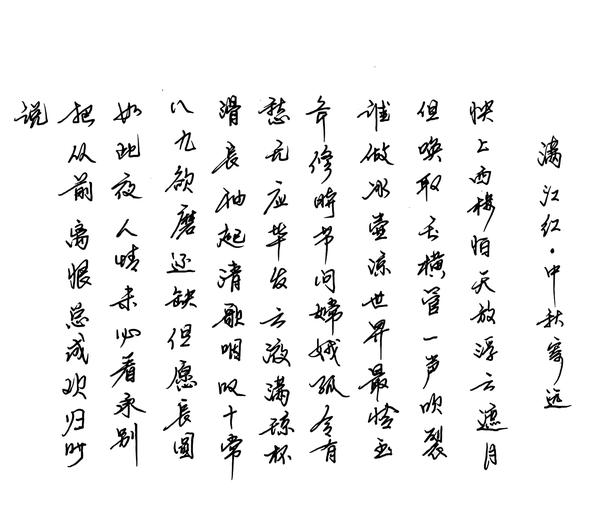 满江红·中秋寄远
快上西楼怕天放浮云遮月
但唤取玉横管一声吹裂
谁做冰壶凉世界最怜玉
斧修时节问嫦娥孤令有
愁无应华发云液满琼杯
滑长袖起清歌咽叹十常
八九欲磨还缺但愿长圆
如此夜人情未必看承别
把从前离恨总成欢归时
说